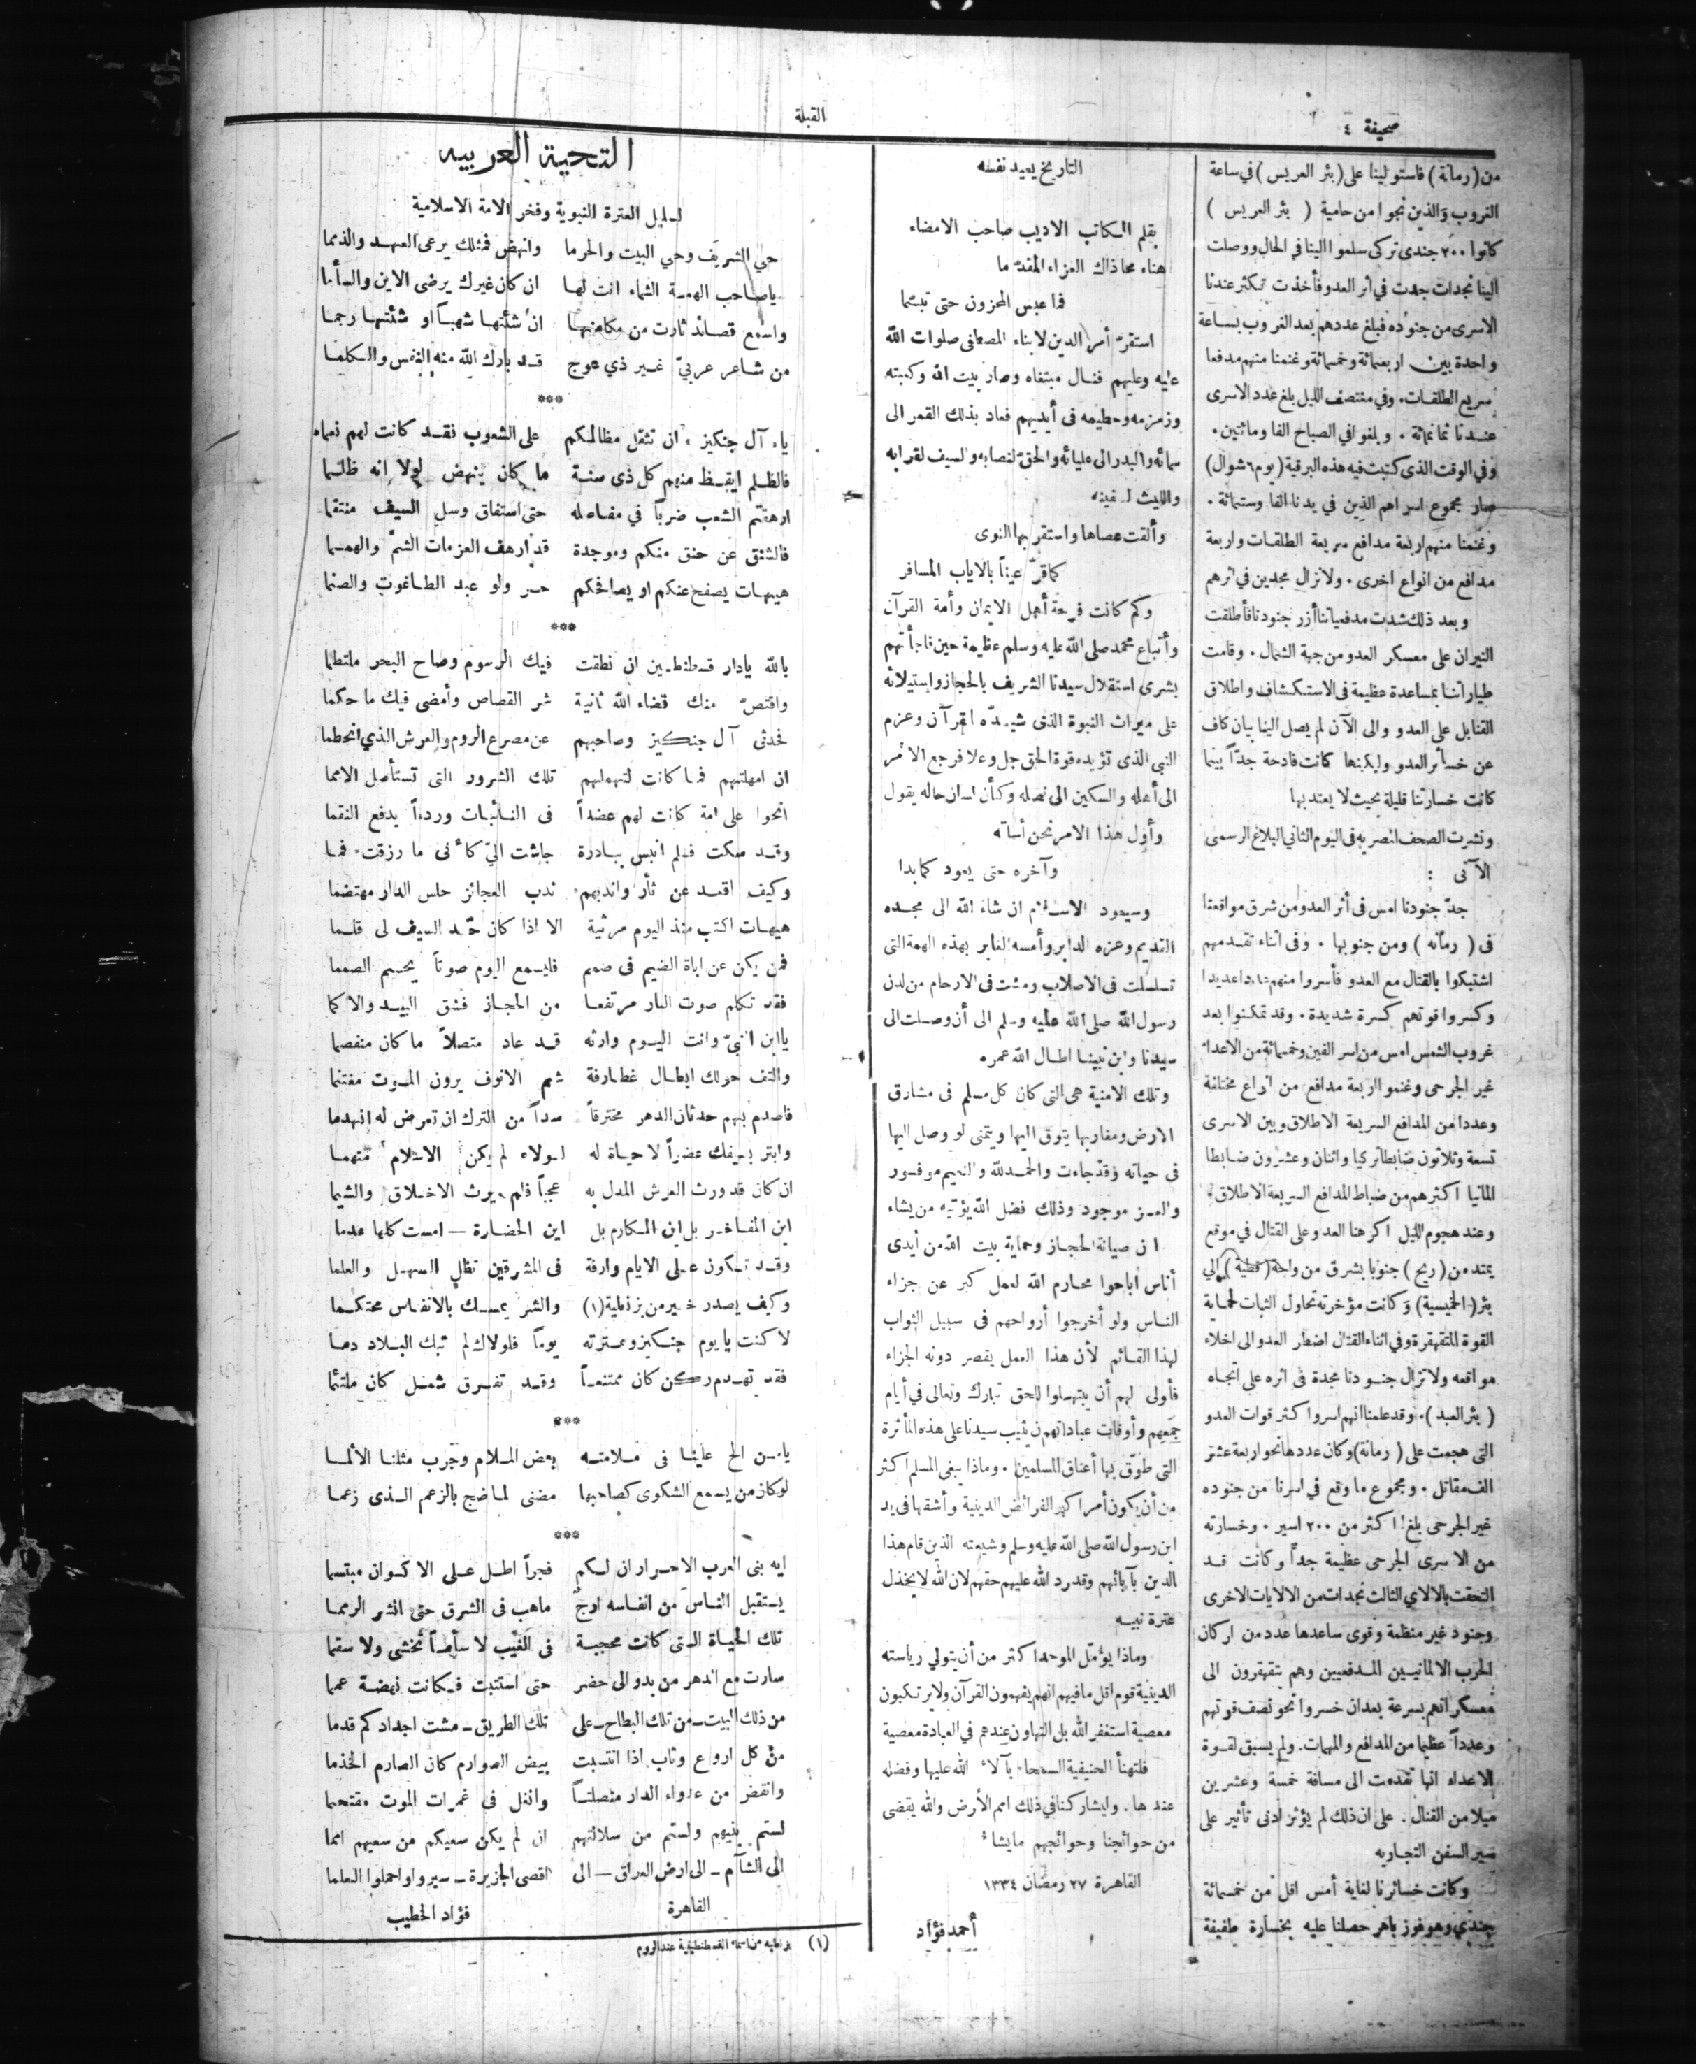 صحيفة ٤
القبلة
من (رمانة) فاستولينا على (بئر العريس) في ساعة
الغروب والذين نجوا من حامية ( بئر العريس )
كانوا ٢٠٠ جندى تركى سلموا الينا في الحال ووصلت
الينا نجدات جدت في اثر العدو فأخذت تكثر عندنا
الاسرى من جنوده فبلغ عددهم بعد الغروب بساعة
واحدة بين اربعمائة وخمسمائة وغنمنا منهم مدفعا
سريع الطلقات. وفي منتصف الليل بلغ عدد الاسرى
عندنا ثمانمائة . وبلغوا في الصباح الفا ومائتين .
وفي الوقت الذى كتبت فيه هذه البرقية (يوم ٦ شوال)
صار مجموع اسراهم الذين في يدنا الفا وستمائة .
وغنمنا منهم اربعة مدافع سريعة الطلقات واربعة
مدافع من انواع اخرى . ولا نزال مجدين في اثرهم
وبعد ذلك شدت مدفعياتنا أزر جنودنا فأطلقت
النيران على معسكر العدو من جهة الشمال . وقامت
طياراتنا بمساعدة عظيمة فى الاستكشاف واطلاق
القنابل على العدو والى الآن لم يصل الينا بيان كاف
عن خسائر العدو ولكنها كانت فادحة جداً بينما
كانت خسارتنا قليلة بحيث لا يعتد بها
ونشرت الصحف المصرية فى اليوم الثاني البلاغ الرسمى
الآتى :
جدّ جنودنا امس فى أثر العدو من شرق مواقعنا
فى ( رمانه ) ومن جنوبها . وفى اثناء تقدمهم
اشتبكوا بالقتال مع العدو فأسروا منهم عددا عديدا
وكسروا قوتهم كسرة شديدة . وقد تمكنوا بعد
غروب الشمس امس من اسر الفين وخمسمائة من الاعداء
غير الجرحى وغنموا اربعة مدافع من انواع مختلفة
وعددا من المدافع السريعة الاطلاق وبين الاسرى
تسعة وثلاثون ضابطا تركيا واثنان وعشرون ضابطا
المانيا اكثرهم من ضباط المدافع السريعة الاطلاق.
وعند هجوم الليل اكرهنا العدو على القتال في موقع
يمتد من (ربح) جنوبا بشرق من واحة (قطية) الى
بئر (الخبسية) وكانت مؤخرته تحاول الثبات لحماية
القوة المتقهقرة وفي اثناء القتال اضطر العدو الى اخلاء
مواقعه ولا تزال جنودنا مجدة فى اثره على اتجاه
( بئر العبد ). وقد علمنا انهم اسروا كثر قوات العدو
التى هجمت على ( رمانة ) وكان عددها نحو اربعة عشر
الف مقاتل . ومجموع ما وقع في اسرنا من جنوده
غير الجرحى بلغ اكثر من ٢٠٠ اسير . وخسارته
من الاسرى الجرحى عظيمة جداً وكانت قد
التحقت بالالاي الثالث نجدات من الالايات الاخرى
وجنود غير منظمة وقوى ساعدها عدد من اركان
الحرب الالمانيين المدفعيين وهم يتقهقرون الى
معسكراتهم بسرعة بعد ان خسروا نحو نصف قوتهم
وعدداً عظيما من المدافع والمهمات. ولم يسبق لقوة
الاعداء انها تقدمت الى مسافة خمسة وعشرين
ميلا من القنال . على ان ذلك لم يؤثر ادنى تأثير على
سير السفن التجاريه
وكانت خسائرنا لغاية أمس اقل من خمسمائة
جندي وهو فوز باهر حصلنا عليه بخسارة طفيفة
التاريخ يعيد نفسه
بقلم الكاتب الاديب صاحب الامضاء
هناء محا ذاك العزاء المقدما
فما عبس المحزون حتى تبسما
استقر أمر الدين لابناء المصطفى صلوات الله
عليه وعليهم فنال مبتغاه وصار بيت الله وكعبته
وزمزمه وحطيمه فى أيديهم فعاد بذلك القمر الى
سمائه والبدر الى عليائه والحق لنصابه والسيف لقرابه
والليث لـ
وألقت عصاها واستقر بها النوى
كما قرّ عيناً بالاياب المسافر
وكم كانت فرحة أهل الايمان وأمة القرآن
وأتباع محمد صلى الله عليه وسلم عظيمة حين فاجأتهم
بشرى استقلال سيدنا الشريف بالحجاز واستيلائه
على ميراث النبوة الذى شيده القرآن وعزم
النبى الذى تؤيده قوة الحق جل وعلا فرجع الامر
الى أهله والسكين الى نصله وكأن لسان حاله يقول
وأول هذا الامر نحن أساته
وآخره حتى يعود كما بدا
وسيعود الاسلام ان شاء الله الى مجده
القديم وعزه الدابر وأمسه الغابر بهذه الهمة التى
تسلسلت فى الاصلاب ومشت فى الارحام من لدن
رسول الله صلى الله عليه وسلم الى أن وصلت الى
سيدنا وابن نبينا اطال الله عمره
وتلك الامنية هى التى كان كل مسلم فى مشارق
الارض ومغاربها يتوق اليها ويتمنى لو وصل اليها
فى حياته وقد جاءت والحمد لله والنعيم موفور
والعز موجود وذلك فضل الله يؤتيه من يشاء
ان صيانة الحجاز وحماية بيت الله من أيدى
أناس أباحوا محارم الله لعمل كبر عن جزاء
الناس ولو أخرجوا أرواحهم فى سبيل الثواب
لهذا القائم لأن هذا العمل يقصر دونه الجزاء
فأولى لهم أن يبتهلوا للحق تبارك وتعالى في أيام
جمعهم وأوقات عباداتهم أن يثيب سيدنا على هذه المأثرة
التى طوق بها أعناق المسلمين . وماذا يبغى المسلم اكثر
من أن يكون أمر اكبر الفرائض الدينية وأشقها فى يد
ابن رسول الله صلى الله عليه وسلم وشيعته الذين قام هذا
الدين بآبائهم وقد رد الله عليهم حقهم لان الله لا يخذل
عترة نبيه
وماذا يؤمل الموحد اكثر من أن يتولي رياسته
الدينية قوم اقل ما فيهم انهم يفهمون القرآن ولا يرتكبون
معصية استغفر الله بل التهاون عندهم في العبادة معصية
فلتهنأ الحنيفية السمحاء بآلاء الله عليها وفضله
عندها . وليشاركنا في ذلك امم الأرض والله يقضى
من حوائجنا وحوائجهم ما يشاء
القاهرة ٢٧ رمضان ١٣٣٤
أحمد فؤاد
التحية العربيه
لسليل العترة النبوية وفخر الامة الاسلامية
حي الشريف وحي البيت والحرما وانهض فمثلك يرعى العهد والذمما
ياصاحب الهمة الشماء انت لها ان كان غيرك يرضى الاين والسأما
واسمع قصائد ثارت من مكامنها ان شئتها شهباً او شئتها رجما
من شاعر عربيّ غير ذي عوج قد بارك الله منه النفس والكلما
***
ياء آل جنكيز ، ان تثقل مظالمكم على الشعوب فقد كانت لهم نعماء
فالظلم ايقظ منهم كل ذى سنة ما كان ينهض لولا انه ظلما
ارهقتم الشعب ضرباً في مفاصله حتى استفاق وسل السيف منتقما
فالشنق عن حنق منكم وموجدة قد أرهف العزمات الشمّ والهمما
هيهات يصفح عنكم او يصافحكم حر ولو عبد الطاغوت والصنما
***
بالله يادار قسطنطين ان نطقت فيك الرسوم وصاح البحر ملتطما
واقتص منك قضاء الله ثانية شر القصاص وأمضى فيك ما حكما
فحدثى آل جنكيز وصاحبهم عن مصرع الروم والعرش الذي انحطما
ان امهلتهم فما كانت لتهملهم تلك الشرور التى تستأصل الامما
انحوا على امة كانت لهم عضداً فى النائبات وردءاً يدفع النقما
وقد سكت فلم انبس ببادرة جاشت اليّ كأنى ما رزقت فما
وكيف اقعد عن ثأر واندبهم ندب العجائز حلس الدار مهتضما
هيهات اكتب منذ اليوم مرثية الا اذا كان حد السيف لى قلما
فمن يكن عن اباة الضيم فى صمم فليسمع اليوم صوتاً يحسم الصمما
فقد تكلم صوت النار مرتفعا من الحجاز فشق البيد والاكما
ياابن النبيّ وانت اليوم وارثه قد عاد متصلاً ما كان منفصما
والتف حولك ابطال غطارفة شم الانوف يرون الموت مغتنما
فاصدم بهم حدثان الدهر مخترقاً سداً من الترك ان تعرض له انهدما
وابتر بسيفك عضواً لا حياة له لولاه لم يكن الاسلام متهما
ان كان قد ورث العرش المدل به عجباً فلم يرث الاخلاق والشيما
اين المفاخر بل اين المكارم بل اين الحضارة — امست كلها عدما
وقد تكون على الايام وارفة فى المشرقين تظل السهل والعلما
وكيف يصدر خير من بزنطية (١) والشر يمسك بالانفاس محتكما
لا كنت يا يوم جنكيز وعترته يوماً فلولاك لم تبك البلاد دما
فقد تهدم ركن كان ممتنعاً وقد تفرق شمل كان ملتئما
***
يامن الح علينا فى ملامته بعض الملام وجرب مثلنا الألما
لو كان من يسمع الشكوى كصاحبها مضنى لما ضج بالزعم الذى زعما
***
ايه بنى العرب الاحرار ان لكم فجراً اطل على الاكوان مبتسما
يستقبل الناس من انفاسه ارج ماهب فى الشرق حتى انشر الرمما
تلك الحياة التى كانت محجبة فى الغيب لا سأماً تخشى ولا سقما
سارت مع الدهر من بدو الى حضر حتى استتبت فكانت نهضة عمما
من ذلك البيت – من تلك البطاح – على تلك الطريق – مشت اجدادكم قدما
من كل اروع وثاب اذا انتسبت بيض الصوارم كان الصارم الخذما
وانقض من عدواء الدار منصلتاً وانغل فى غمرات الموت مقتحما
لستم بنيهم ولستم من سلالتهم ان لم يكن سعيكم من سعيهم امما
الى الشآم – الى ارض العراق – الى اقصى الجزيرة – سيروا واحملوا العلما
القاهرة
فؤاد الخطيب
(١) بزنطيه من اسماء القسطنطينية عند الروم